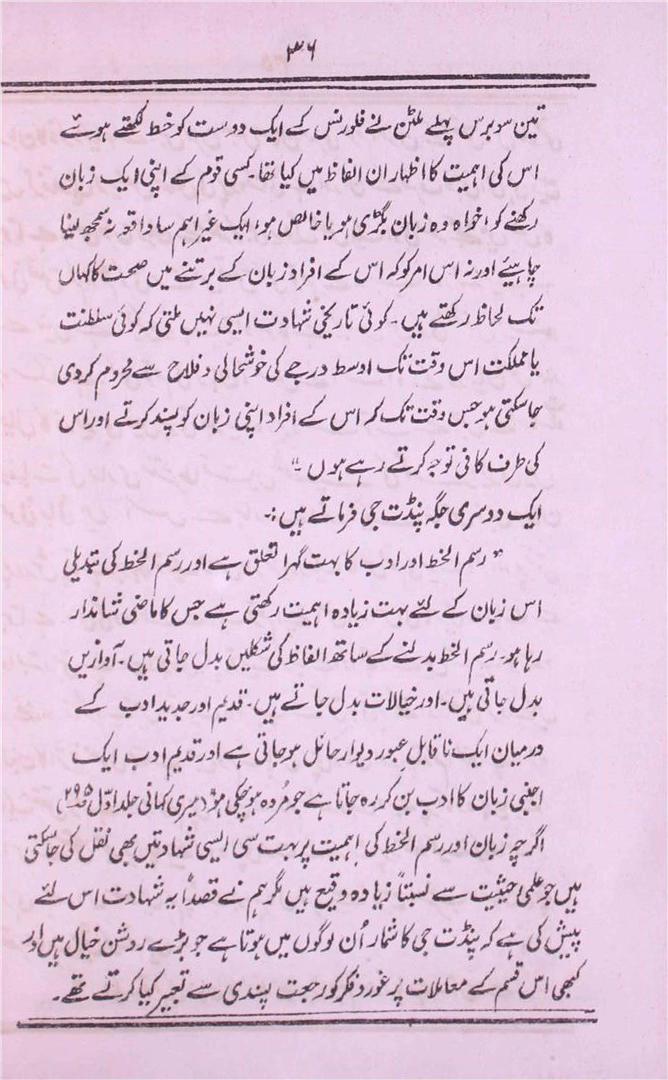 ۳۶
تین سو برس پہلے ملٹن نے فلورنس کے ایک دوست کو خط لکھتے ہوئے
اس کی اہمیت کا اظہار ان الفاظ میں کیا تھا۔ کسی قوم کے اپنی ایک زبان
رکھنے کو، خواہ وہ زبان بگڑی ہو یا خالص ہو، ایک غیر اہم سا واقعہ نہ سمجھ لینا
چاہیئے اور نہ اس امر کو کہ اس کے افراد زبان کے برتنے میں صحت کا کہاں
تک لحاظ رکھتے ہیں۔ کوئی تاریخی شہادت ایسی نہیں ملتی کہ کوئی سلطنت
یا مملکت اس وقت تک اوسط درجے کی خوشحالی و فلاح سے محروم کر دی
جا سکتی ہو جس وقت تک کہ اس کے افراد اپنی زبان کو پسند کرتے اور اس
کی طرف کافی توجہ کرتے رہے ہوں۔"
ایک دوسری جگہ پنڈت جی فرماتے ہیں:۔
"رسم الخط اور ادب کا بہت گہرا تعلق ہے اور رسم الخط کی تبدیلی
اس زبان کے لئے بہت زیادہ اہمیت رکھتی ہے جس کا ماضی شاندار
رہا ہو۔ رسم الخط بدلنے کے ساتھ الفاظ کی شکلیں بدل جاتی ہیں۔ آوازیں
بدل جاتی ہیں۔ اور خیالات بدل جاتے ہیں۔ قدیم اور جدید ادب کے
درمیان ایک ناقابلِ عبور دیوار حائل ہو جاتی ہے اور قدیم ادب ایک
اجنبی زبان کا ادب بن کر رہ جاتا ہے جو مُردہ ہو چکی ہو" (میری کہانی جلد اوّل ص۲۹۵)
اگرچہ زبان اور رسم الخط کی اہمیت پر بہت سی ایسی شہادتیں بھی نقل کی جا سکتی
ہیں جو علمی حیثیت سے نسبتاً زیادہ وقیع ہیں مگر ہم نے قصداً یہ شہادت اس لئے
پیش کی ہے کہ پنڈت جی کا شمار اُن لوگوں میں ہوتا ہے جو بڑے روشن خیال ہیں اور
کبھی اس قسم کے معاملات پر غور و فکر کو رجعت پسندی سے تعبیر کیا کرتے تھے۔